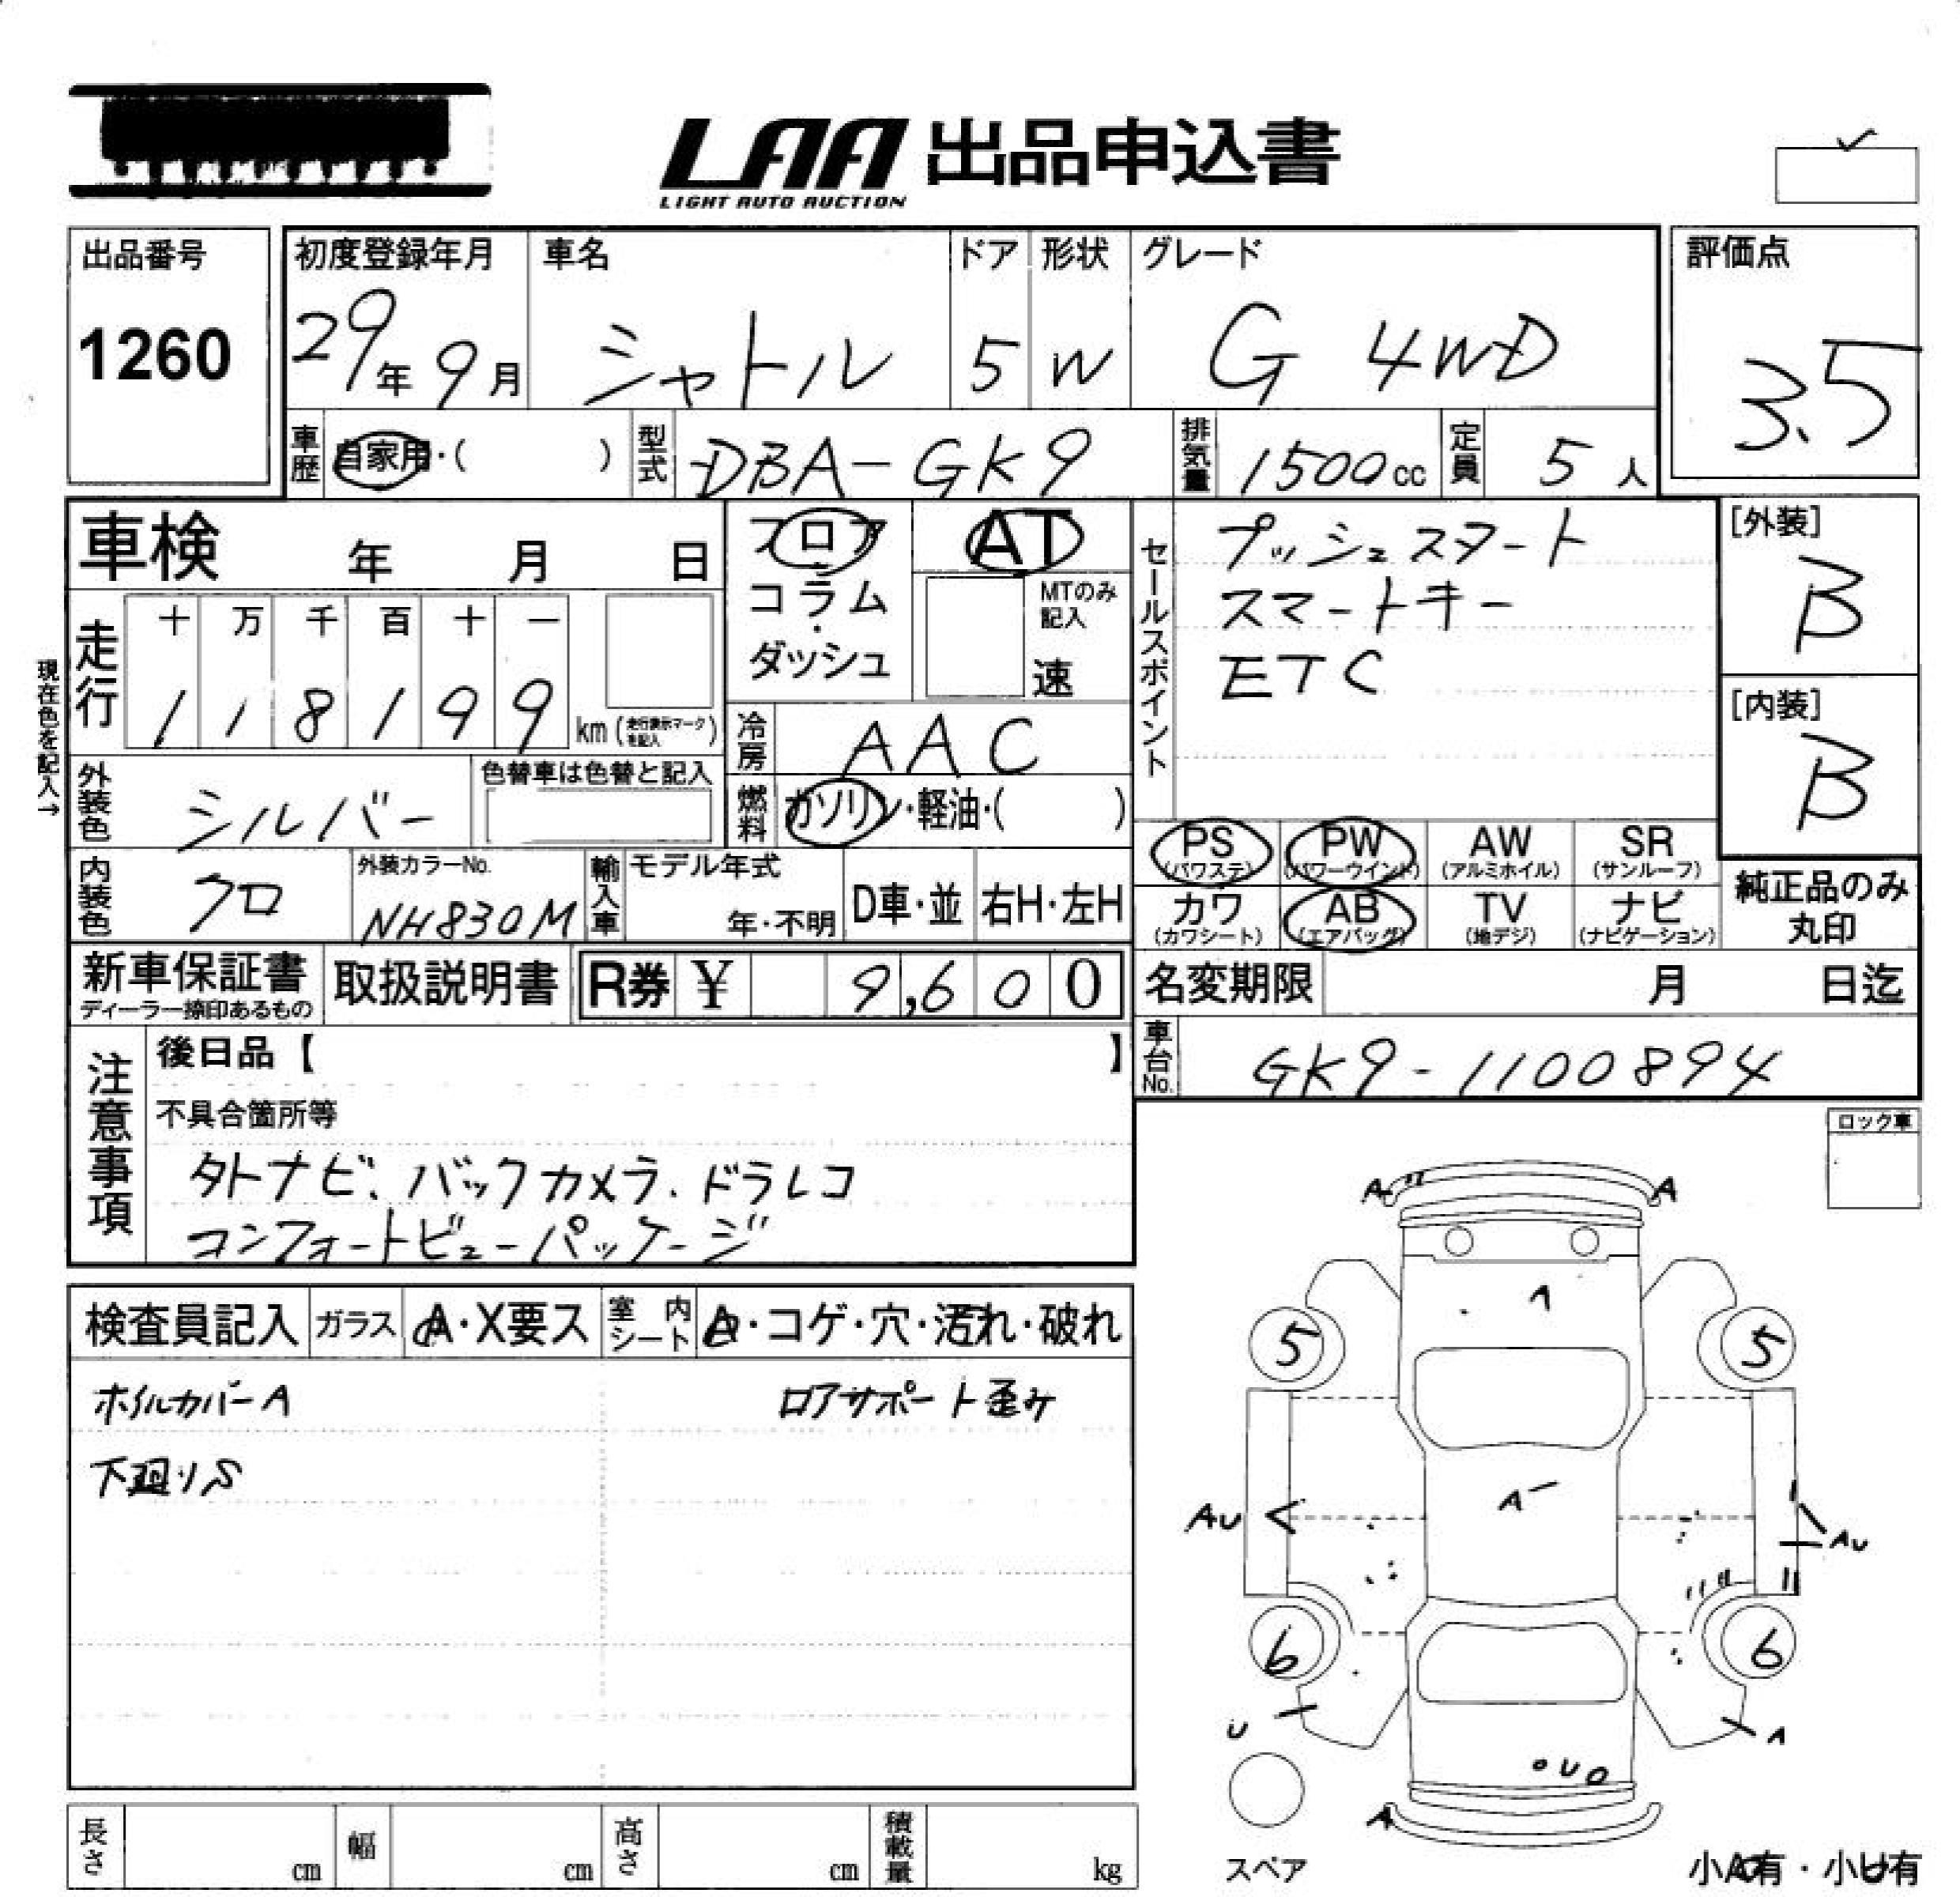 LAA 出品申込書
LIGHT AUTO AUCTION
出品番号
1260
初度登録年月
29年 9月
車名
シャトル
ドア
5
形状
W
グレード
G 4WD
評価点
3.5
車歴
自家用・( )
型式
DBA-GK9
排気量
1500cc
定員
5人
車検 年 月 日
フロア
コラム
・
ダッシュ
AT
MTのみ
記入
速
セールスポイント
プッシュスタート
スマートキー
ETC
[外装]
B
[内装]
B
現在色を記入→
走行
十 万 千 百 十 一
1 1 8 1 9 9
km (走行表示マークを記入)
冷房
AAC
外装色
シルバー
色替車は色替と記入
燃料
ガソリン・軽油・( )
PS
(パワステ)
PW
(パワーウインド)
AW
(アルミホイル)
SR
(サンルーフ)
カワ
(カワシート)
AB
(エアバッグ)
TV
(地デジ)
ナビ
(ナビゲーション)
純正品のみ
丸印
内装色
クロ
外装カラーNo.
NH830M
輸入車
モデル年式
年・不明
D車・並
右H・左H
新車保証書
ディーラー捺印あるもの
取扱説明書
R券 ¥ 9,600
名変期限 月 日迄
車台No.
GK9-1100894
注意事項
後日品【 】
不具合箇所等
外ナビ、バックカメラ、ドラレコ
コンフォートビューパッケージ
ロック車
検査員記入
ガラス
A・X要ス
室内シート
A・コゲ・穴・汚れ・破れ
ホイルカバーA
ロアサポート歪み
下廻りS
A
A
A
5
5
A
AU
AU
6
6
U
A
U
A
スペア
長さ cm
幅 cm
高さ cm
積載量 kg
小A有・小U有